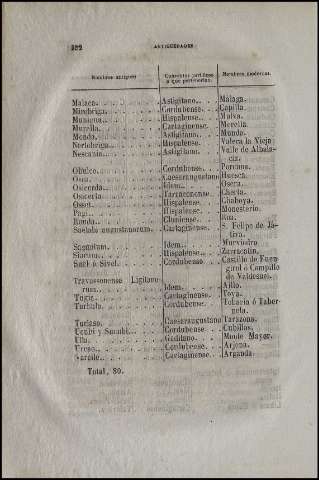 392 ANTIGUEDADES
Nombres antiguos Conventos jurídicos Nombres modernos.
a que pertenecian.
Malaca. Astigitano. Málaga.
Mirobriga. Cordubense. Capilla.
Munigua. Hispalense. Mulva.
Murella. Cartaginense. Morella.
Munda. Astigitano. Munda.
Nertobriga. Hispalense. Valera la Vieja
Nescania. Astigitano. Valle de Abdala-
cis.
Obulco. Cordubense. Porcuna.
Osca. Caesaraugustano Huesca.
Osicerda. Idem. Osera.
Tarraconense. Cherta.
Osset. Hispalense. Chaboya.
Hispalense. Monesterio.
Rauda. Cluniense. Roa.
Saetabi augustanorum. Cartaginense. S. Felipe de Já-
tiva.
Saguntum. Idem. Murviedro
Siarum. Hispalense. Zarracatin.
Suel ó Sivel. Cordubense Castillo de Fuen-
girol ó Campillo
de Valdesaez.
Travassonense Ligitano-
rum. Idem. Aillo.
Tugia. Cartaginense. Toya.
Turbula. Cordubense. Tobaria ó Taber-
nela.
Turiaso. Caesaraugustano Tarazona.
Ucubi y Sucubi. Cordubense Cubillos.
Ulia. Gaditano. Monte Mayor.
Urcao. Cordubense. Arjona.
Cartaginense Arganda
Total, 80.